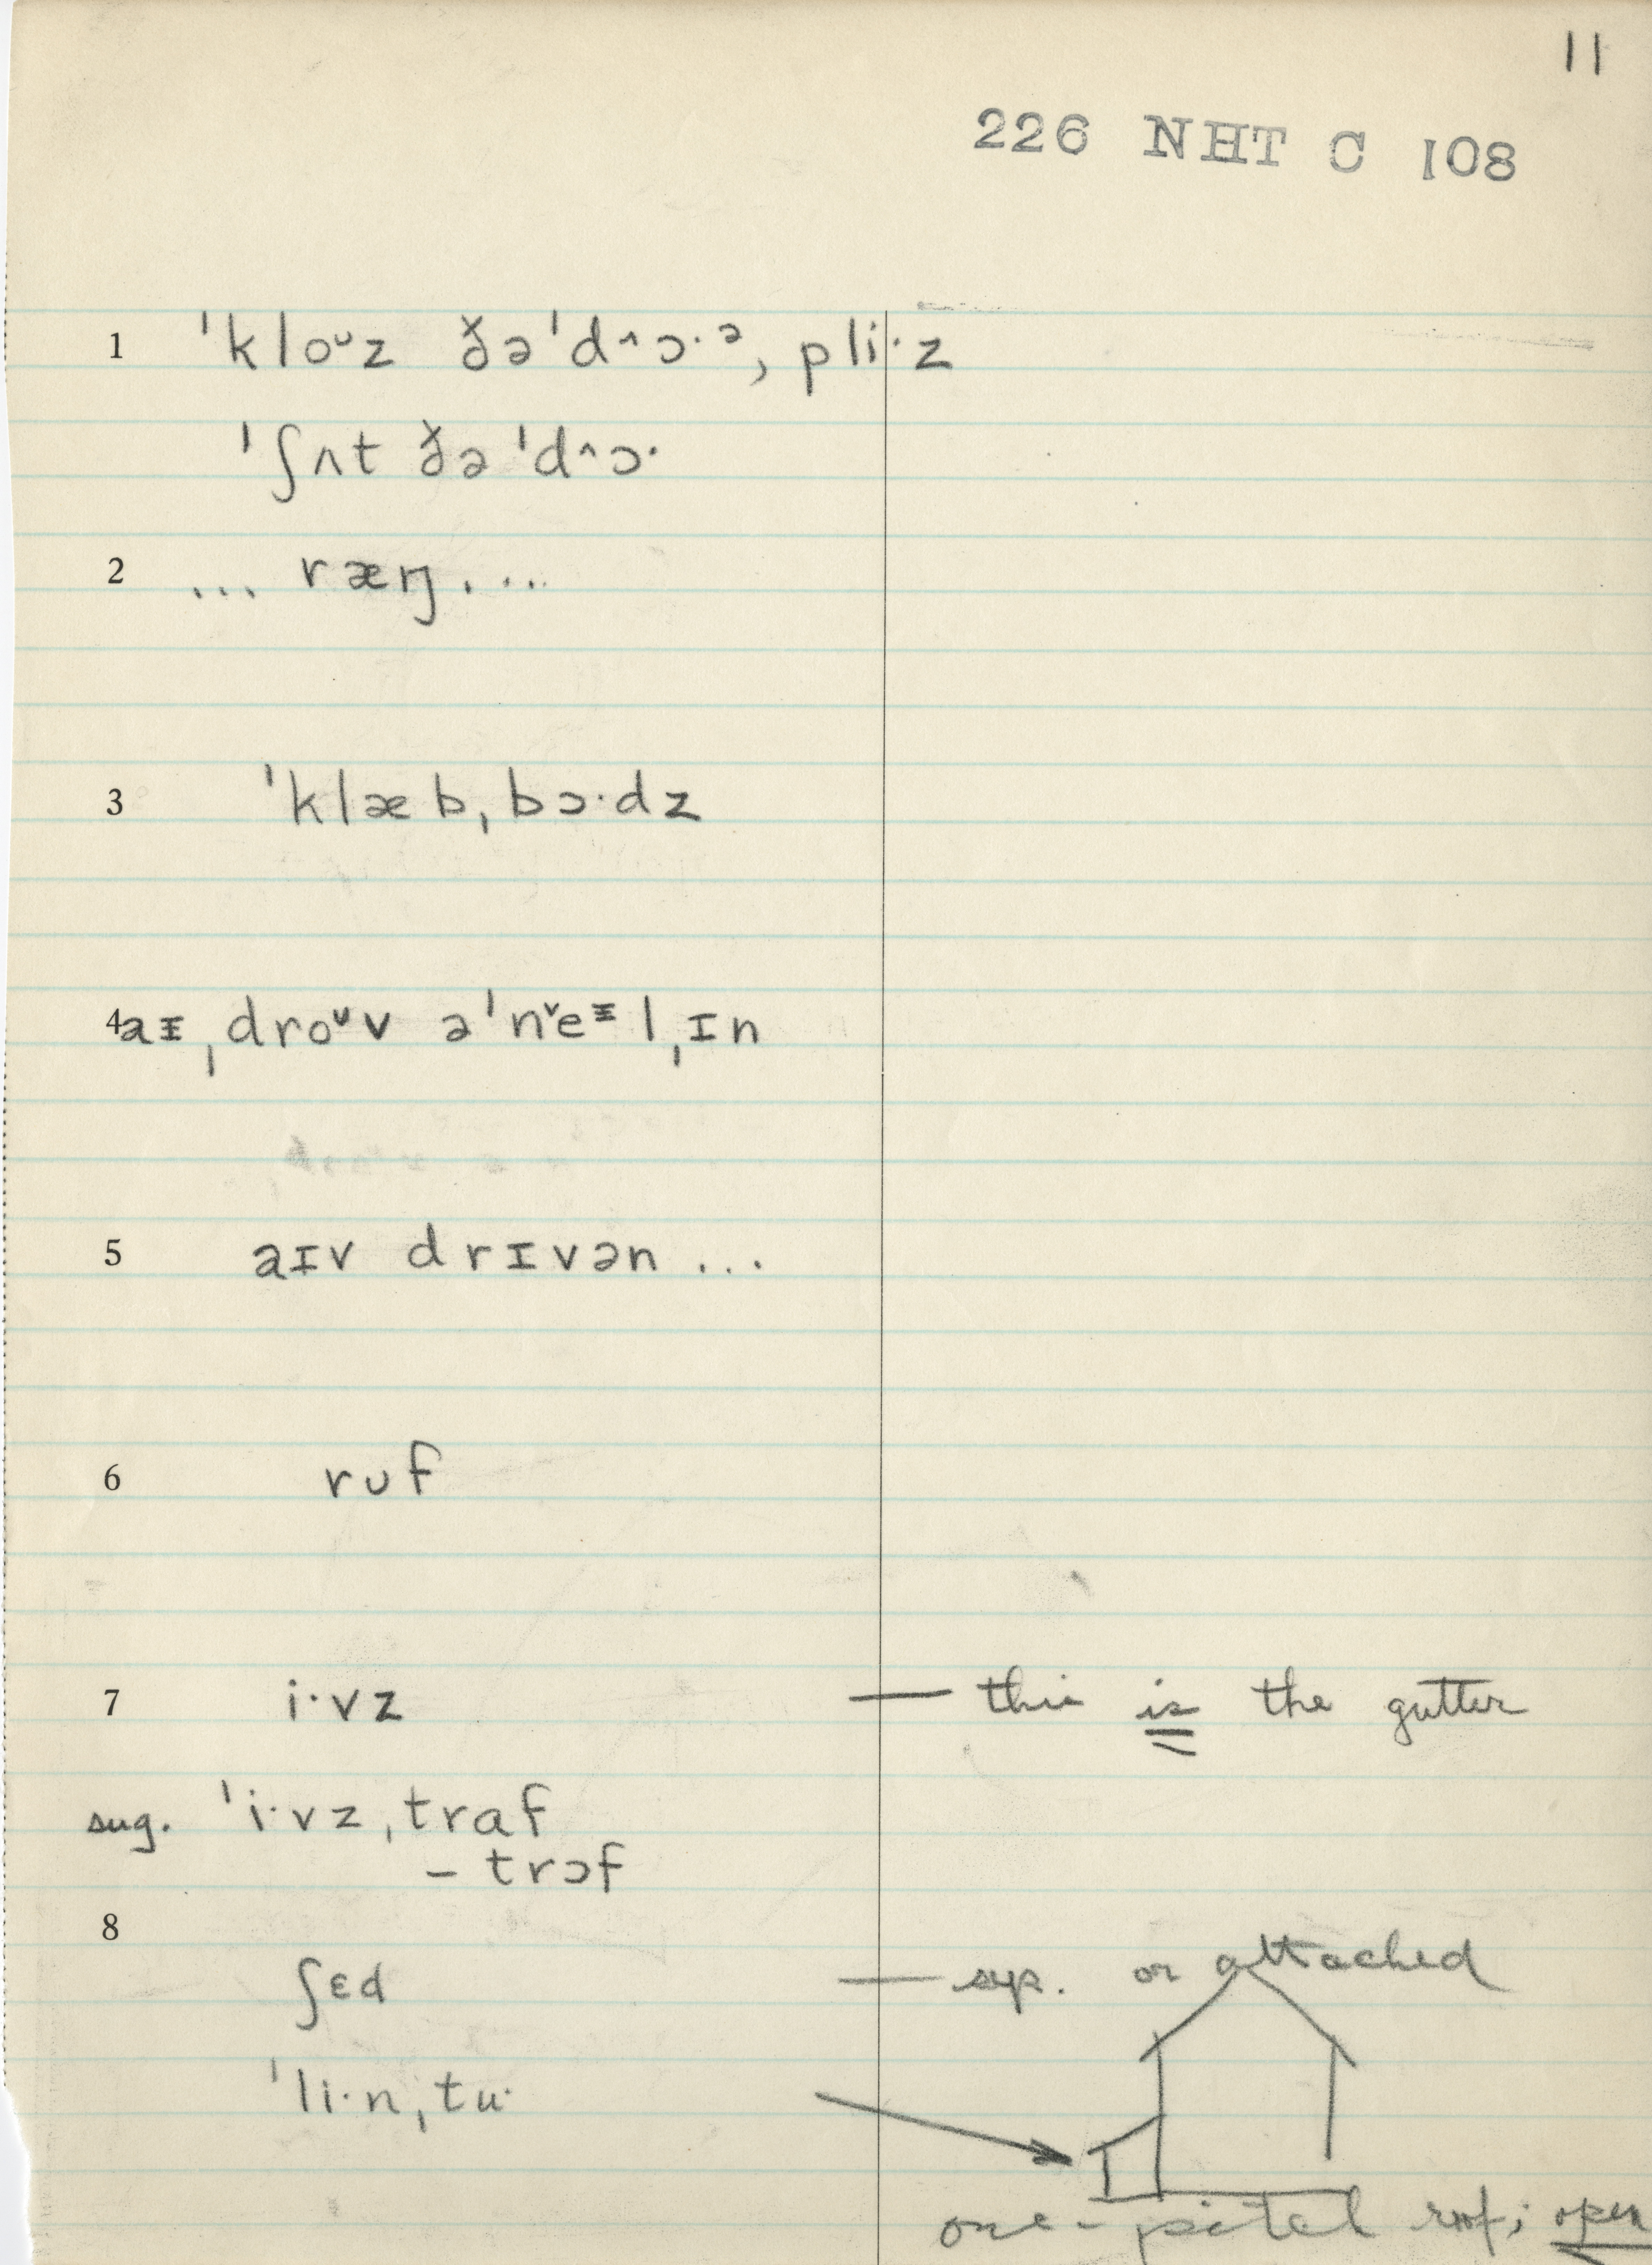 11
226 NHT C 108
1 ˈkloᶷz ðəˈd^ɔ·ᵊ, pli·z
ˈʃʌt ðə ˈd^ɔ·
2 ... ræŋ. ...
3 ˈklæbˌbɔ·dz
4 aɪˌdroᶷv əˈnˇeᶦlˌɪn
5 aɪv drɪvən ...
6 rᴜf
7 i·vz — this is the gutter
sug. ˈi·vzˌtraf
– trɔf
8
ʃɛd — sep. or attached
ˈli·nˌtu·
one-pitch roof; open